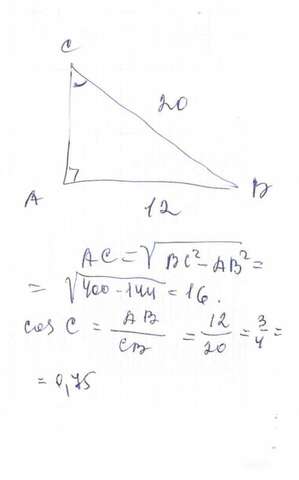 C
20
A
B
12
AC = √BC² - AB² =
= √400 - 144 = 16.
cos C = AB/CB = 12/20 = 3/4 =
= 0,75